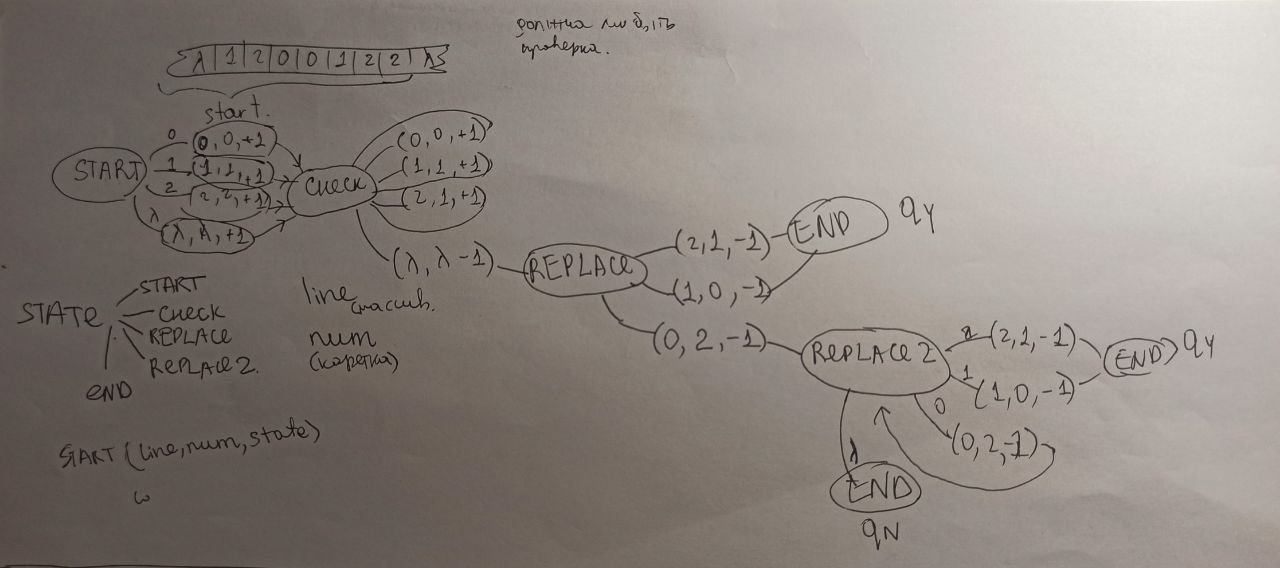 должна быть
проверка.
λ | 1 | 2 | 0 | 0 | 1 | 2 | 2 | λ
start.
START
0 (0, 0, +1)
1 (1, 1, +1)
2 (2, 2, +1)
λ (λ, λ, +1)
CHECK
(0, 0, +1)
(1, 1, +1)
(2, 1, +1)
(λ, λ -1)
REPLACE
(2, 1, -1)
(1, 0, -1)
END qy
(0, 2, -1)
REPLACE 2
2 (2, 1, -1)
1 (1, 0, -1)
END qy
0 (0, 2, -1)
λ
END
qN
STATE
START
CHECK
REPLACE
REPLACE 2.
END
line
(массив.
num
(каретка)
START (line, num, state)